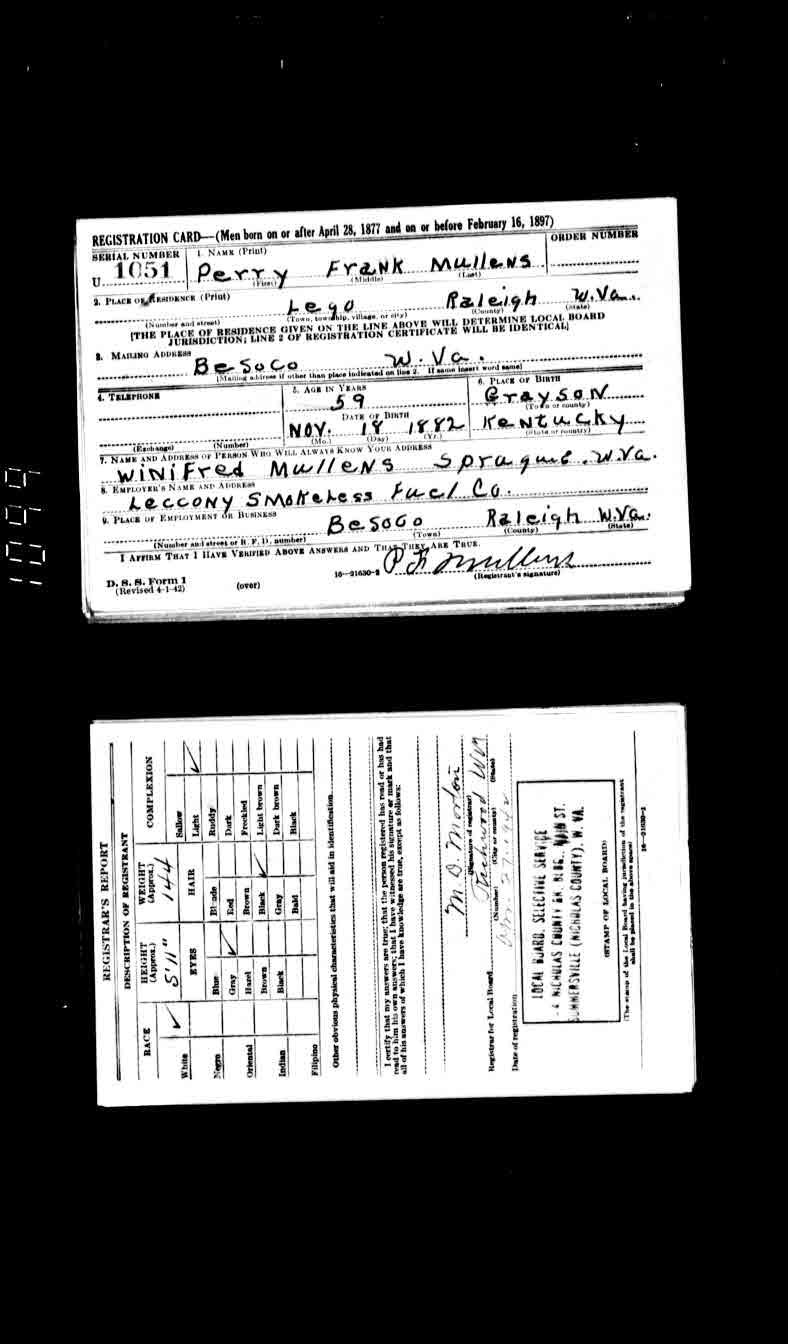 REGISTRATION CARD—(Men born on or after April 28, 1877 and on or before February 16, 1897)
SERIAL NUMBER
1. NAME (Print)
ORDER NUMBER
U 1051
Perry Frank Mullens
(First) (Middle) (Last)
2. PLACE OF RESIDENCE (Print)
Lego Raleigh W.Va.
(Number and street) (Town, township, village, or city) (County) (State)
[THE PLACE OF RESIDENCE GIVEN ON THE LINE ABOVE WILL DETERMINE LOCAL BOARD
JURISDICTION; LINE 2 OF REGISTRATION CERTIFICATE WILL BE IDENTICAL]
3. MAILING ADDRESS
Besoco W. Va.
[Mailing address if other than place indicated on line 2. If same insert word same]
4. TELEPHONE
5. AGE IN YEARS
6. PLACE OF BIRTH
59
Grayson
(Town or county)
DATE OF BIRTH
Nov. 18 1882
Kentucky
(Exchange) (Number)
(Mo.) (Day) (Yr.)
(State or country)
7. NAME AND ADDRESS OF PERSON WHO WILL ALWAYS KNOW YOUR ADDRESS
Winifred Mullens Sprague. W.Va.
8. EMPLOYER'S NAME AND ADDRESS
Leccony Smokeless Fuel Co.
9. PLACE OF EMPLOYMENT OR BUSINESS
Besoco Raleigh W.Va.
(Number and street or R. F. D. number) (Town) (County) (State)
I AFFIRM THAT I HAVE VERIFIED ABOVE ANSWERS AND THAT THEY ARE TRUE.
P F Mullens
D. S. S. Form 1
(Revised 4-1-42)
(over)
16—21630-2
(Registrant's signature)
REGISTRAR'S REPORT
DESCRIPTION OF REGISTRANT
RACE
HEIGHT (Approx.)
WEIGHT (Approx.)
COMPLEXION
5'11"
144
White ✓
EYES
HAIR
Sallow
Light ✓
Negro
Blue
Blonde
Ruddy
Gray ✓
Red
Dark
Oriental
Hazel
Brown
Freckled
Brown
Black ✓
Light brown
Indian
Black
Gray
Dark brown
Filipino
Bald
Black
Other obvious physical characteristics that will aid in identification
I certify that my answers are true; that the person registered has read or has had
read to him his own answers; that I have witnessed his signature or mark and that
all of his answers of which I have knowledge are true, except as follows:
M D Morton
(Signature of registrar)
Registrar for Local Board
Richwood
(Number) (City or county) (State)
Date of registration
27 1942
LOCAL BOARD, SELECTIVE SERVICE
NICHOLAS COUNTY BK. BLDG., MAIN ST.
SUMMERSVILLE (NICHOLAS COUNTY), W. VA.
(STAMP OF LOCAL BOARD)
(The stamp of the Local Board having jurisdiction of the registrant
shall be placed in the above space)
16—21630-1